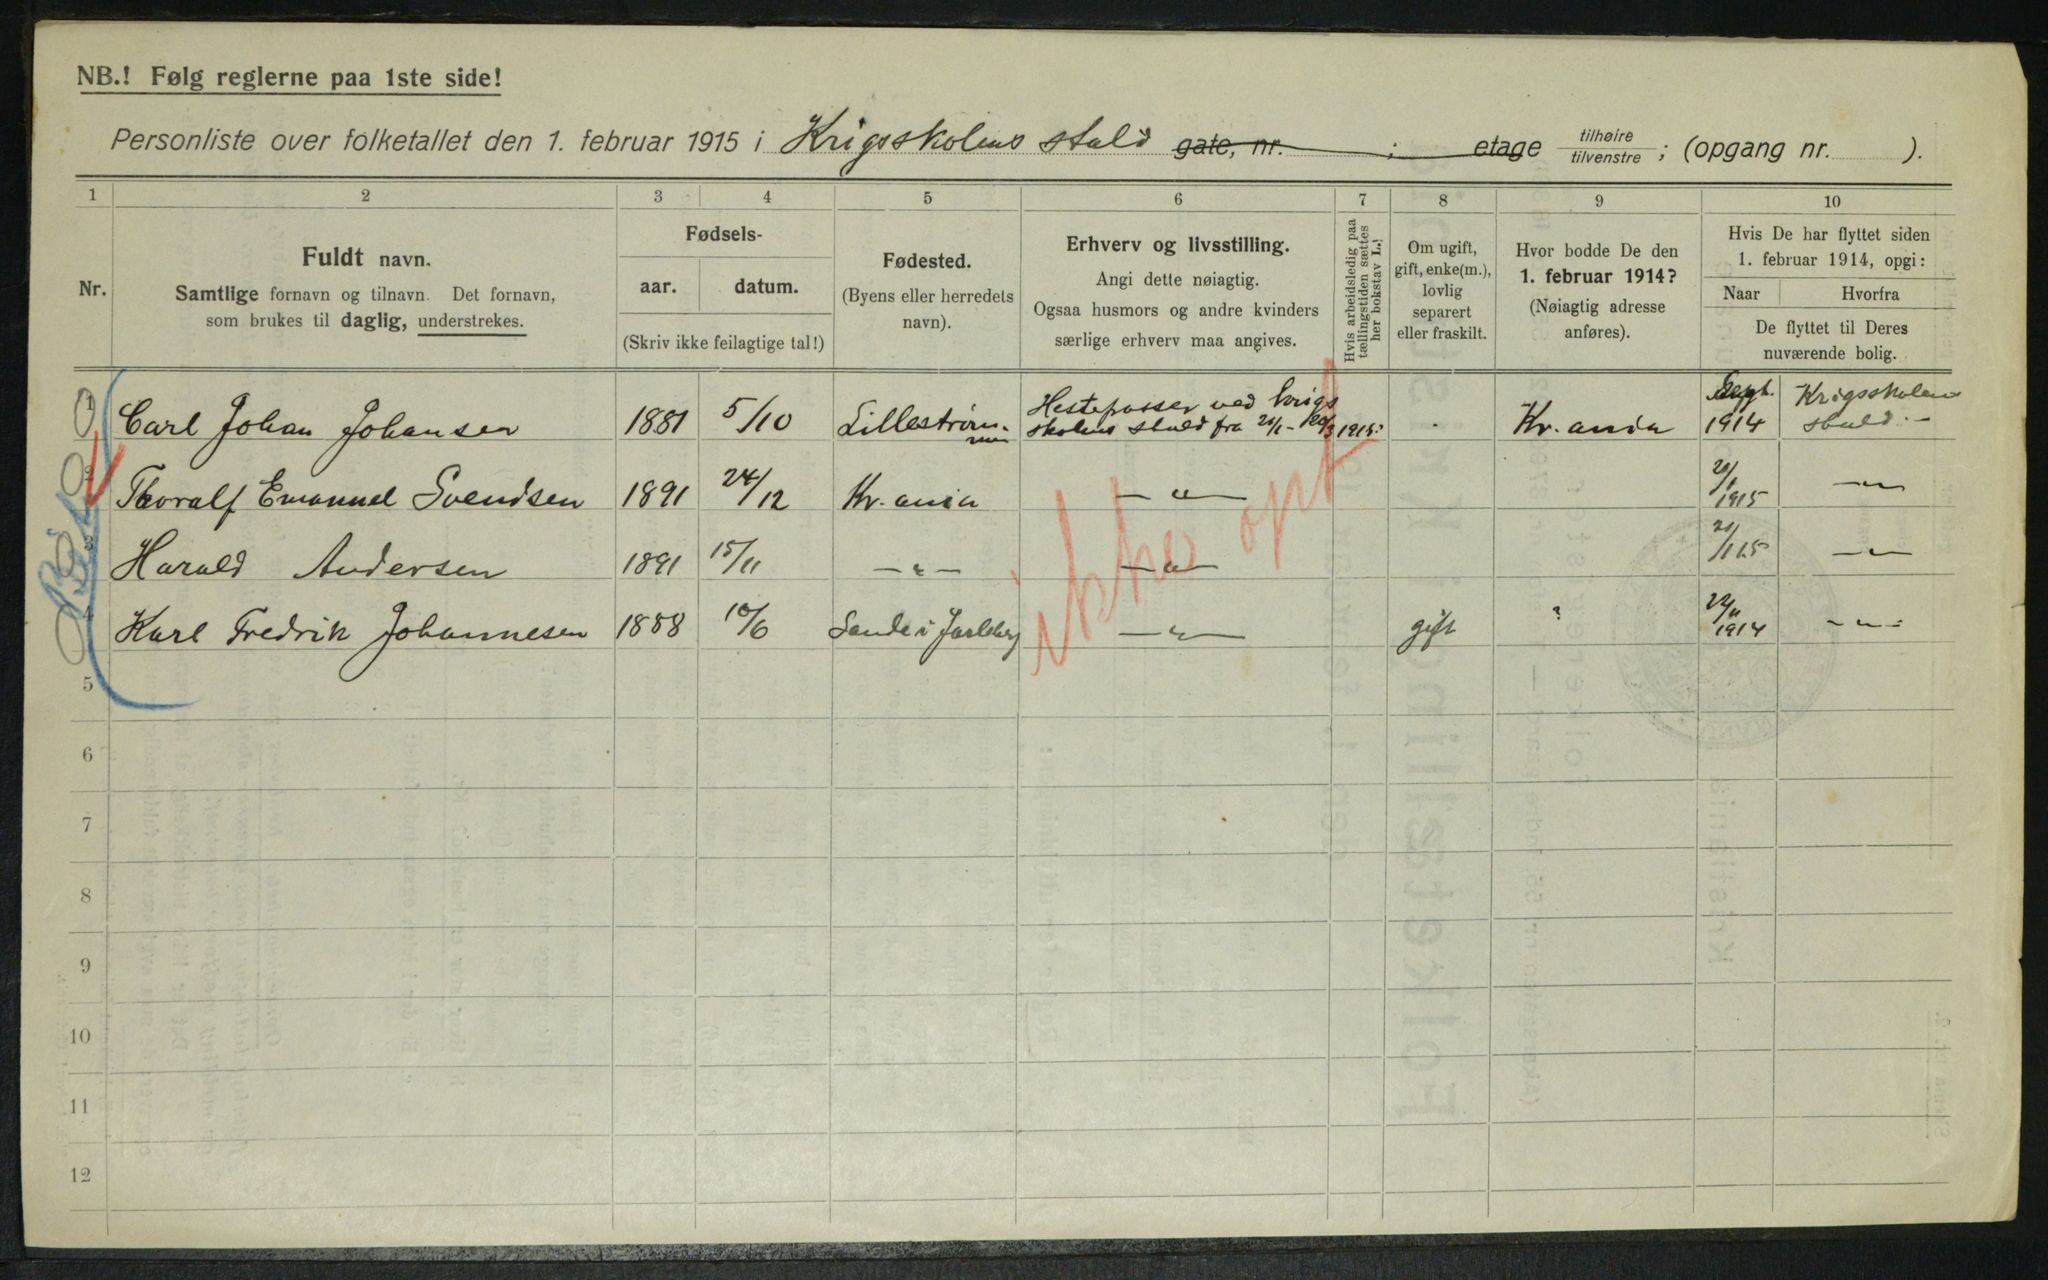 NB.! Følg reglerne paa 1ste side!
Personliste over folketallet den 1. februar 1915 i Krigsskolens stald gate, nr. ; etage tilhøire tilvenstre ; (opgang nr. ).
1 2 3 4 5 6 7 8 9 10
Nr.
Fuldt navn.
Samtlige fornavn og tilnavn. Det fornavn,
som brukes til daglig, understrekes.
Fødsels-
aar. datum.
(Skriv ikke feilagtige tal!)
Fødested.
(Byens eller herredets
navn).
Erhverv og livsstilling.
Angi dette nøiagtig.
Ogsaa husmors og andre kvinders
særlige erhverv maa angives.
Hvis arbeidsledig paa
tællingstiden sættes
her bokstav L.!
Om ugift,
gift, enke(m.),
lovlig
separert
eller fraskilt.
Hvor bodde De den
1. februar 1914?
(Nøiagtig adresse
anføres).
Hvis De har flyttet siden
1. februar 1914, opgi:
Naar Hvorfra
De flyttet til Deres
nuværende bolig.
1 Carl Johan Johansen 1881 5/10 Lillestrøm Hestepasser ved krigs
skolens stald fra 20/1 - 20/3 1915 Kr.ania Sept. 1914 Krigsskolens
stald -
2 Thoralf Emanuel Svendsen 1891 24/12 Kr.ania — „ — 20/1 1915 — „ —
3 Harald Andersen 1891 15/11 — „ — — „ — 20/1 15 — „ —
4 Karl Fredrik Johannesen 1888 10/6 Sande i Jarlsberg — „ — gift ? 22/11 1914 — „ —
ikke opt
5
6
7
8
9
10
11
12